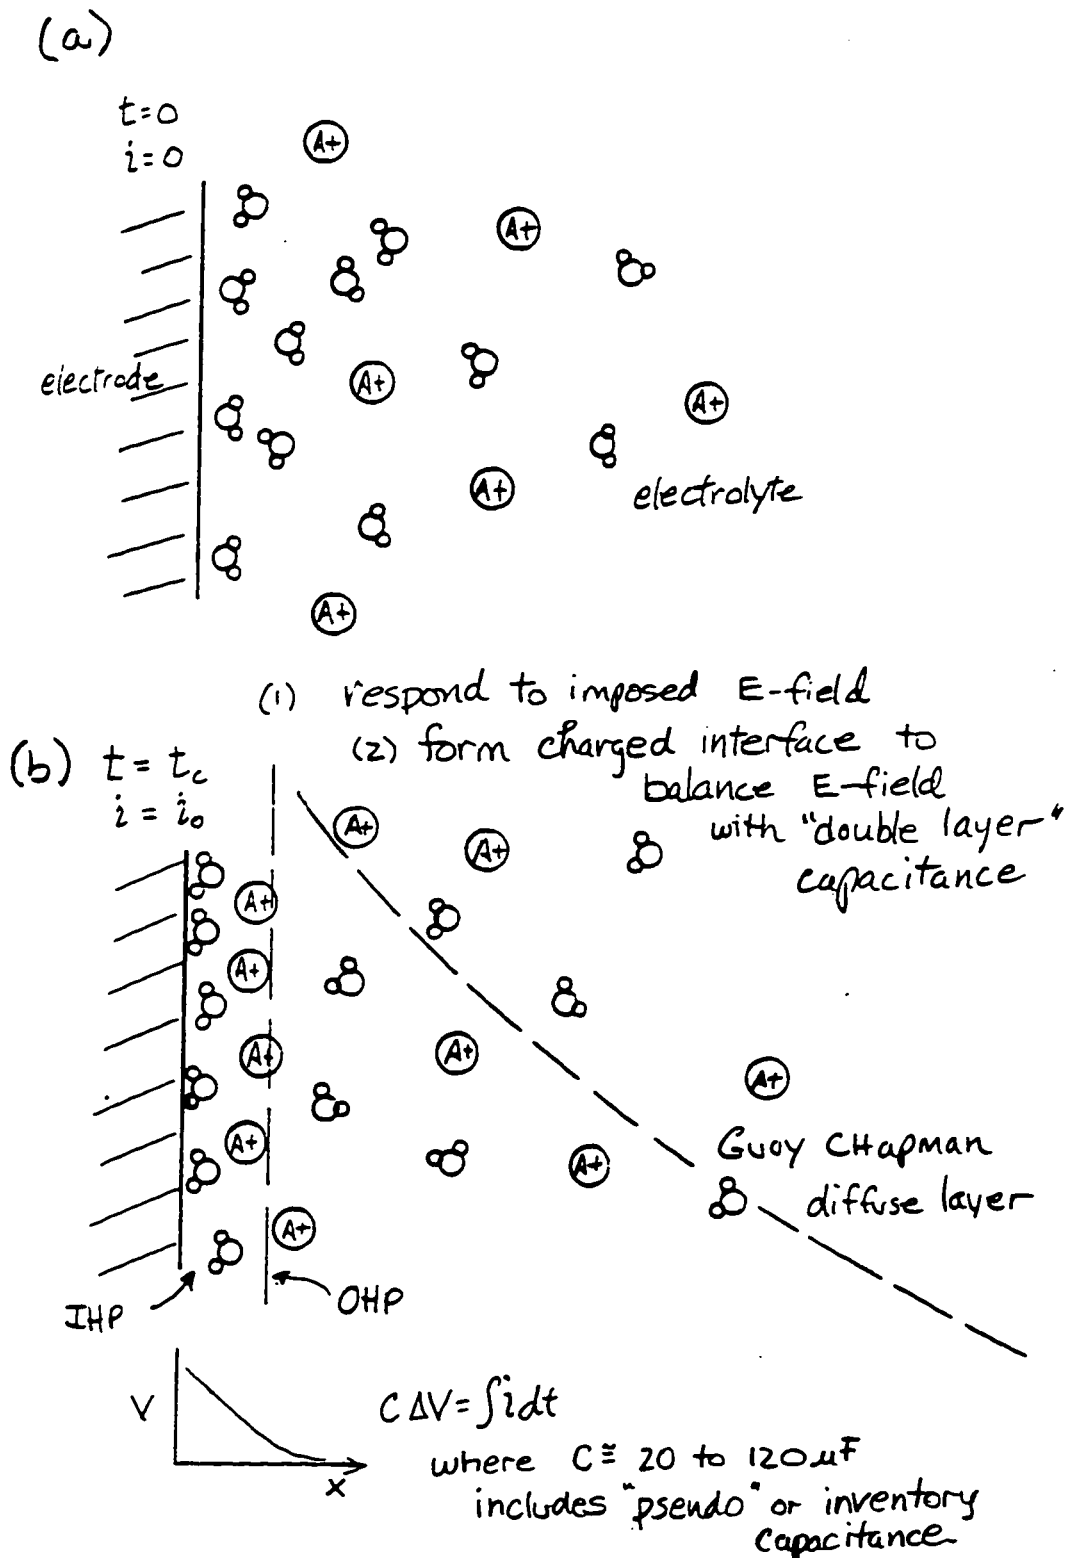 (a)
t=0
i=0
A+
A+
A+
A+
electrode
A+
electrolyte
A+
(1) respond to imposed E-field
(b) t = tc
(2) form charged interface to
i = io
balance E-field
with "double layer"
capacitance
A+
A+
A+
A+
A+
A+
A+
A+
A+
Guoy CHapman
diffuse layer
A+
IHP
OHP
V
x
C ΔV = ∫i dt
where C ≅ 20 to 120 μF
includes "psendo" or inventory
capacitance